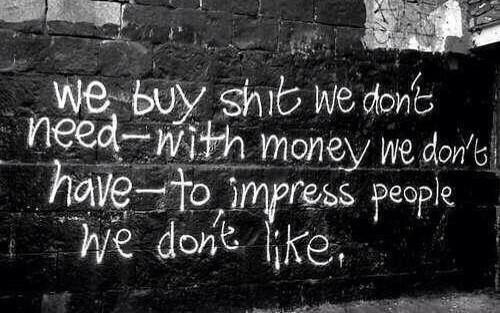 we buy shit we don't
need—with money we don't
have—to impress people
we don't like.